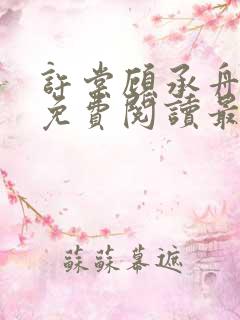 許棠顧承舟
免費閱讀最
蘇蘇幕遮